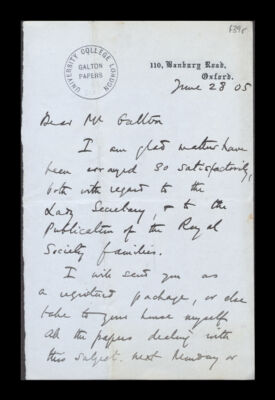 UNIVERSITY COLLEGE LONDON
GALTON
PAPERS
110, Banbury Road,
Oxford.
June 28 05
Dear Mr Galton
I am glad matters have
been arranged so satisfactorily,
both with regard to the
Lady Secretary, & to the
Publication of the Royal
Society families.
I will send you as
a registered package, or else
take to your house myself
all the papers dealing with
this subject next Monday or